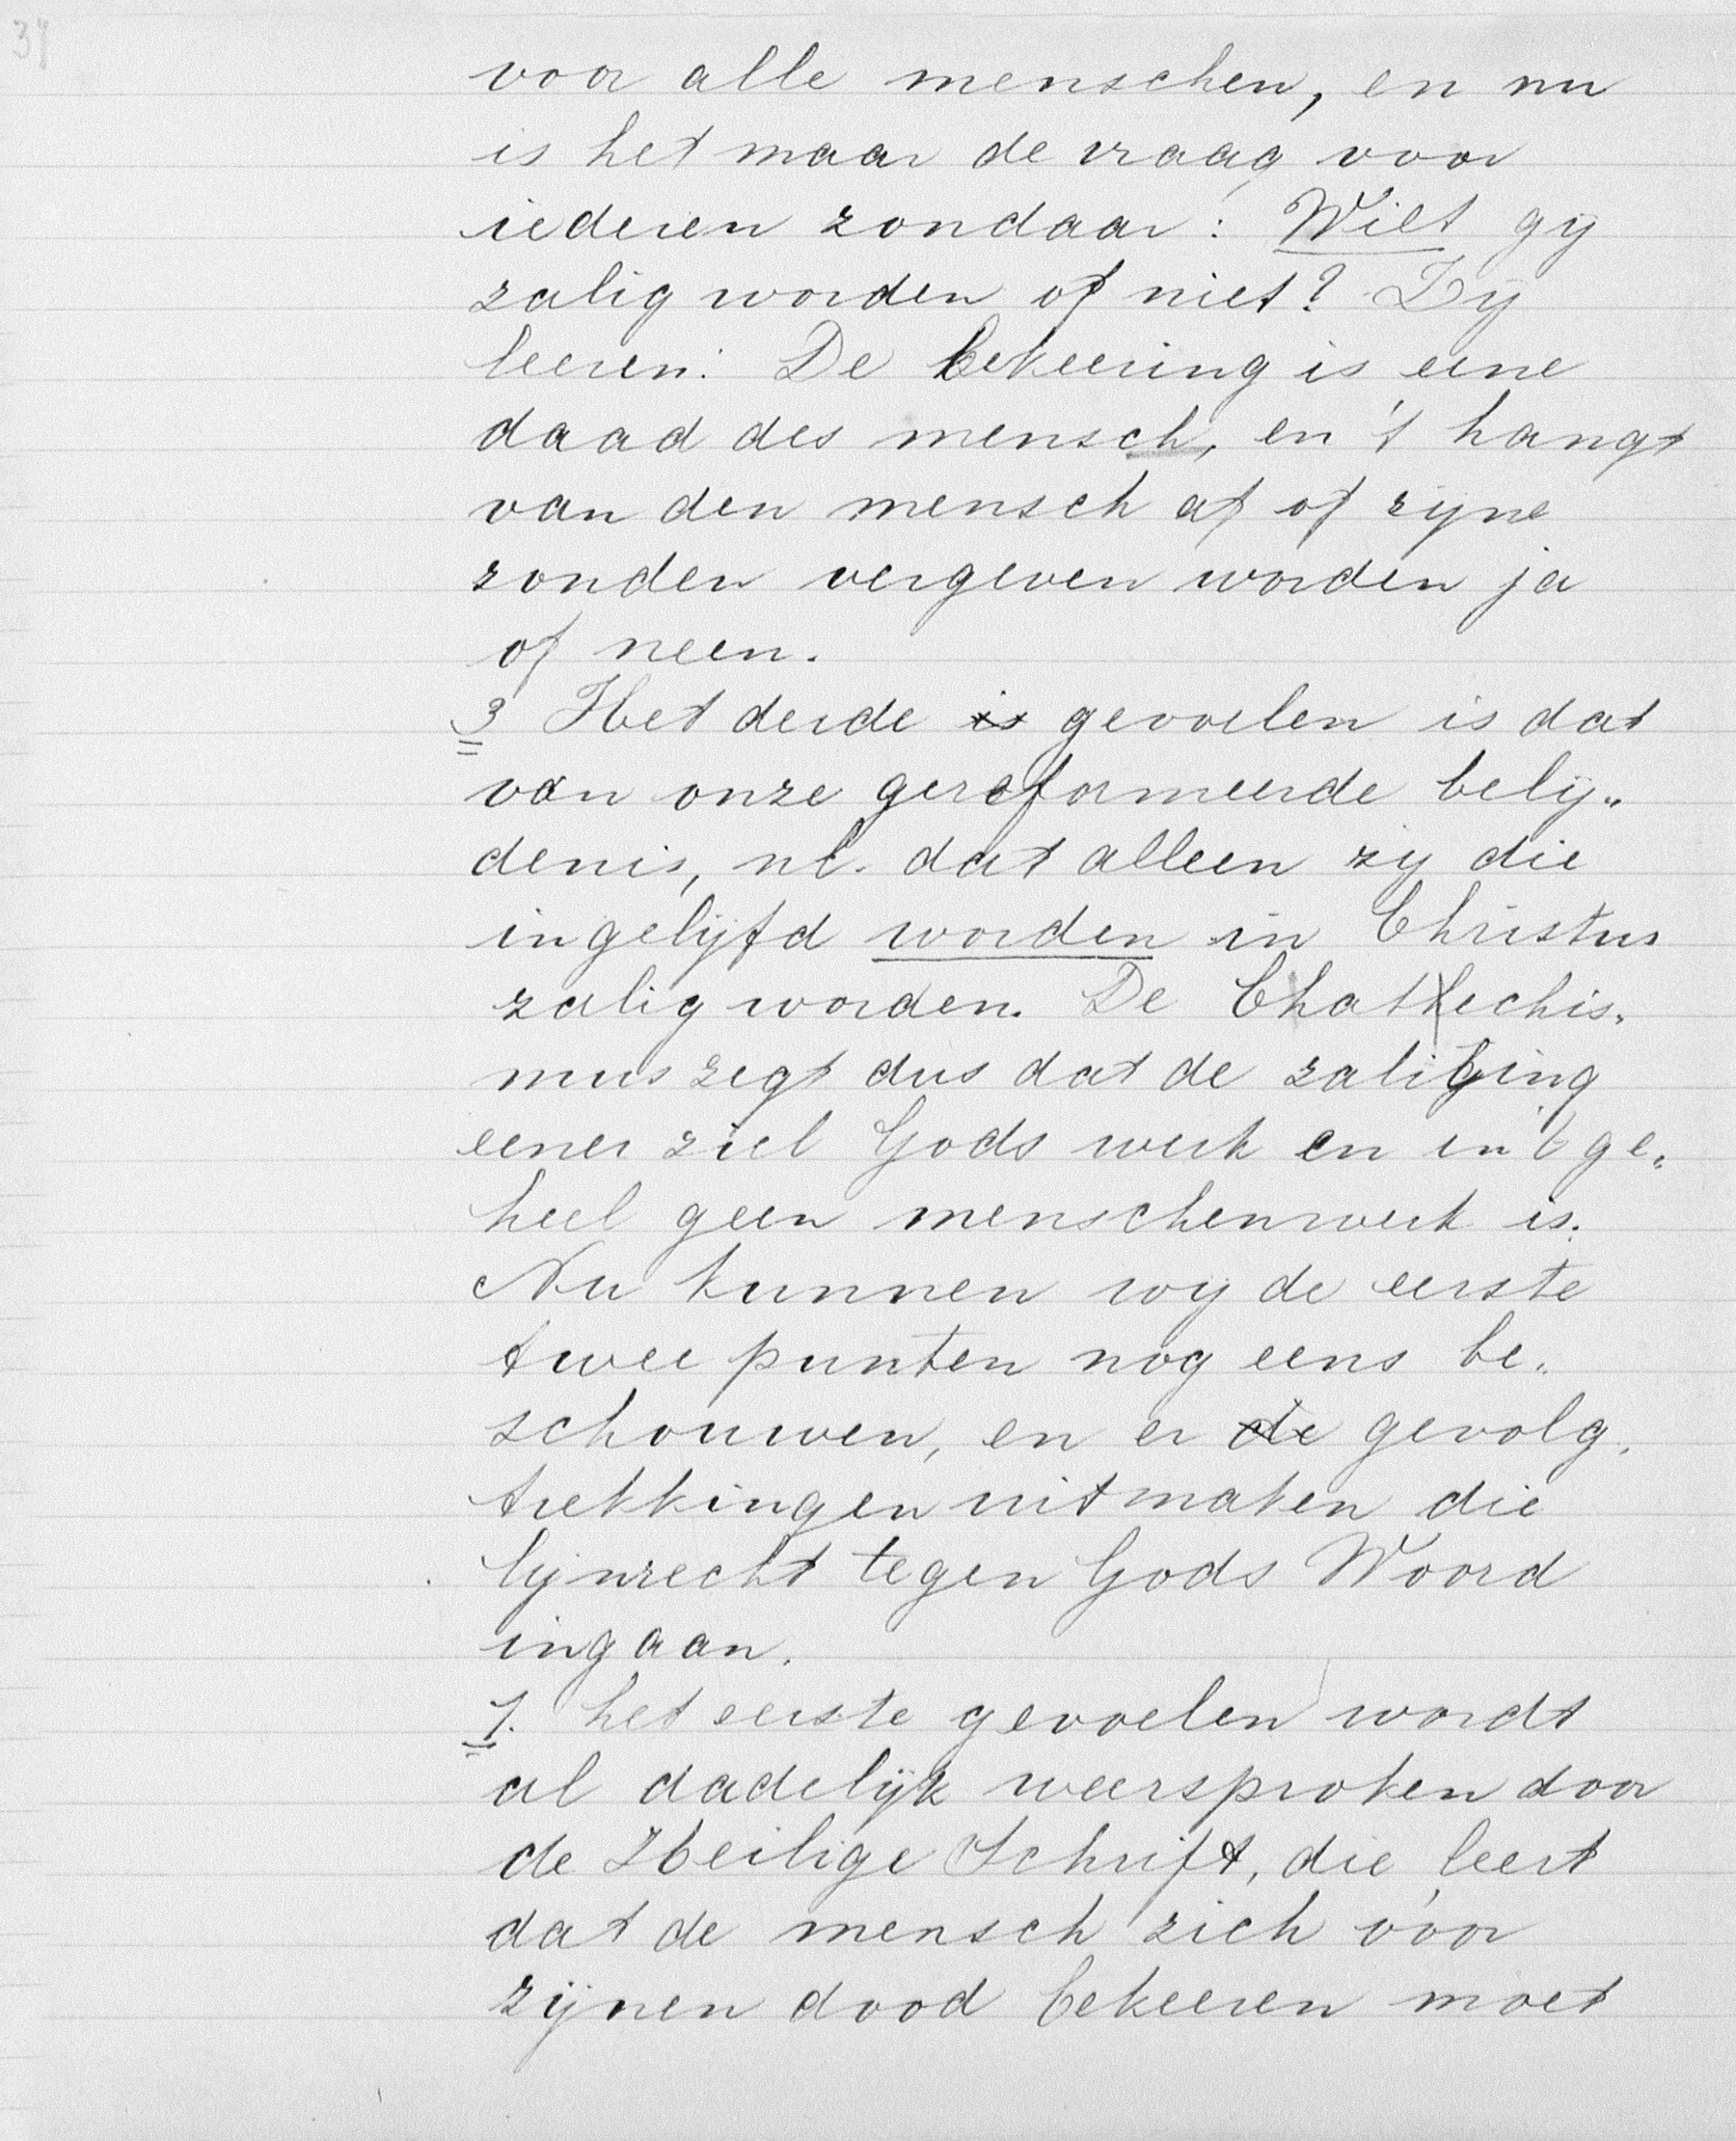 39
voor alle menschen, en nu
is het maar de vraag voor
iederen zondaar: Wilt gy
zalig worden of niet? Zy
leeren: De bekeering is eene
daad des mensch, en 't hangt
van den mensch af of zyne
zonden vergeven worden ja
of neen.
3 Het derde is gevoelen is dat
van onze gereformeerde bely„
denis, nl. dat alleen zy die
ingelijfd worden in Christus
zalig worden. De Chathechis„
mus zegt dus dat de zaliging
eener ziel Gods werk en in 't ge„
heel geen menschenwerk is.
Nu kunnen wy de eerste
twee punten nog eens be„
schouwen, en er de gevolg„
trekkingen uitmaken die
lijnrecht tegen Gods Woord
ingaan.
1. het eerste gevoelen wordt
al dadelijk weersproken door
de Heilige Schrift, die leert
dat de mensch zich vóór
zijnen dood bekeeren moet